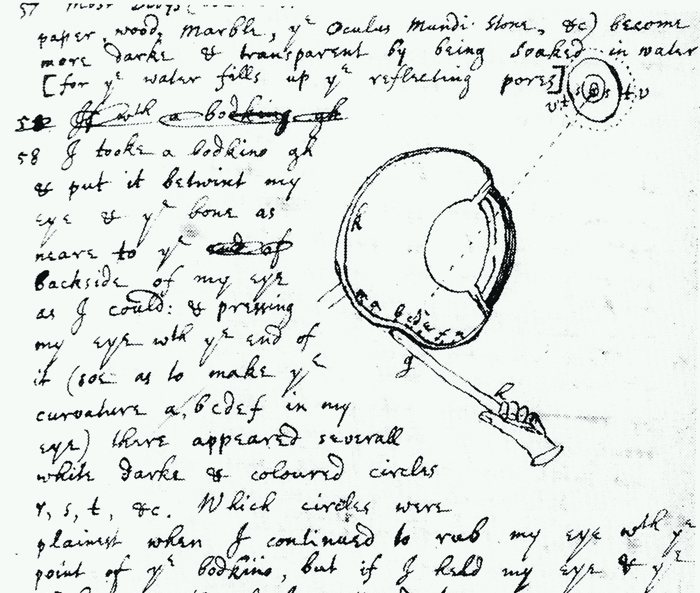 57
paper, wood, marble, yᵉ Oculus Mundi Stone, &c) become
more darke & transparent by being soaked in water
[for yᵉ water fills up yᵉ reflecting pores]
58 If wth a bodkine gh
58 I tooke a bodkine gh
& put it betwixt my
eye & yᵉ bone as
neare to yᵉ end of
backside of my eye
as I could: & pressing
my eye wth yᵉ end of
it (soe as to make yᵉ
curvature a, bcdef in my
eye) there appeared severall
white darke & coloured circles
r, s, t, &c. Which circles were
plainest when I continued to rub my eye wth yᵉ
point of yᵉ bodkine, but if I held my eye & yᵉ
v t s s t v
k
g
h